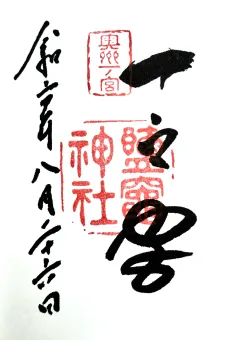 奥州一宮
一之宮
鹽竈
神社
令和六年八月二十六日